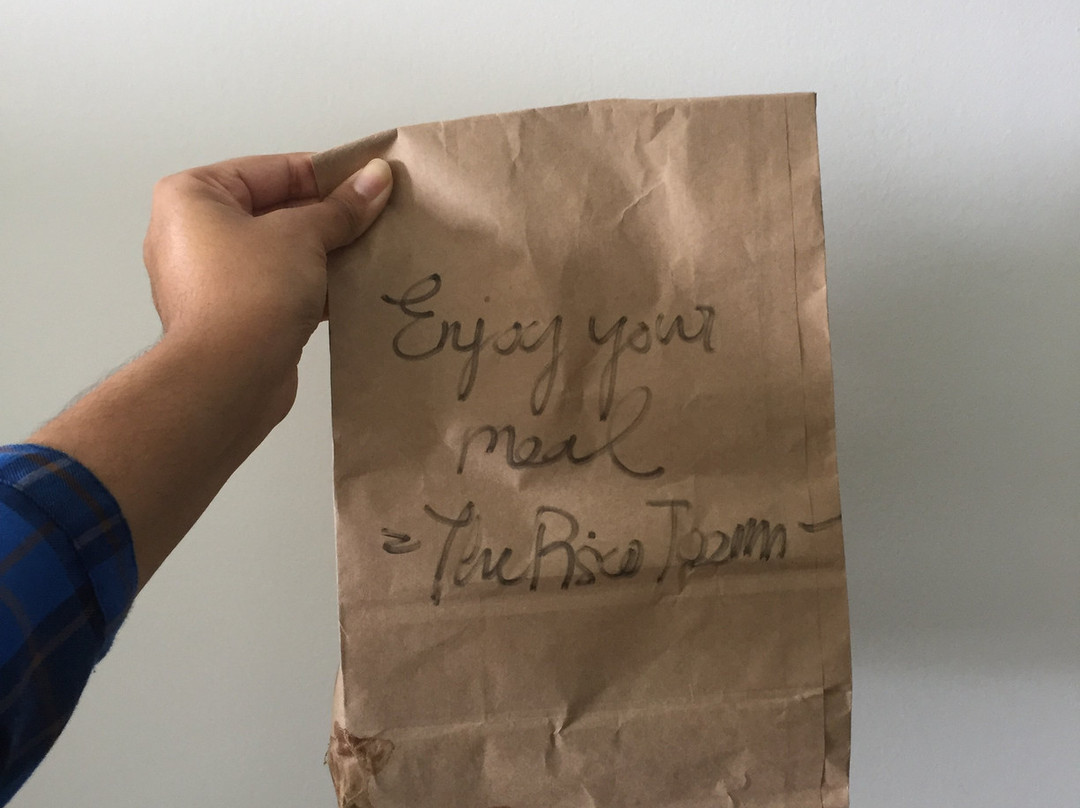 Enjoy your
meal
- The Risco Team -